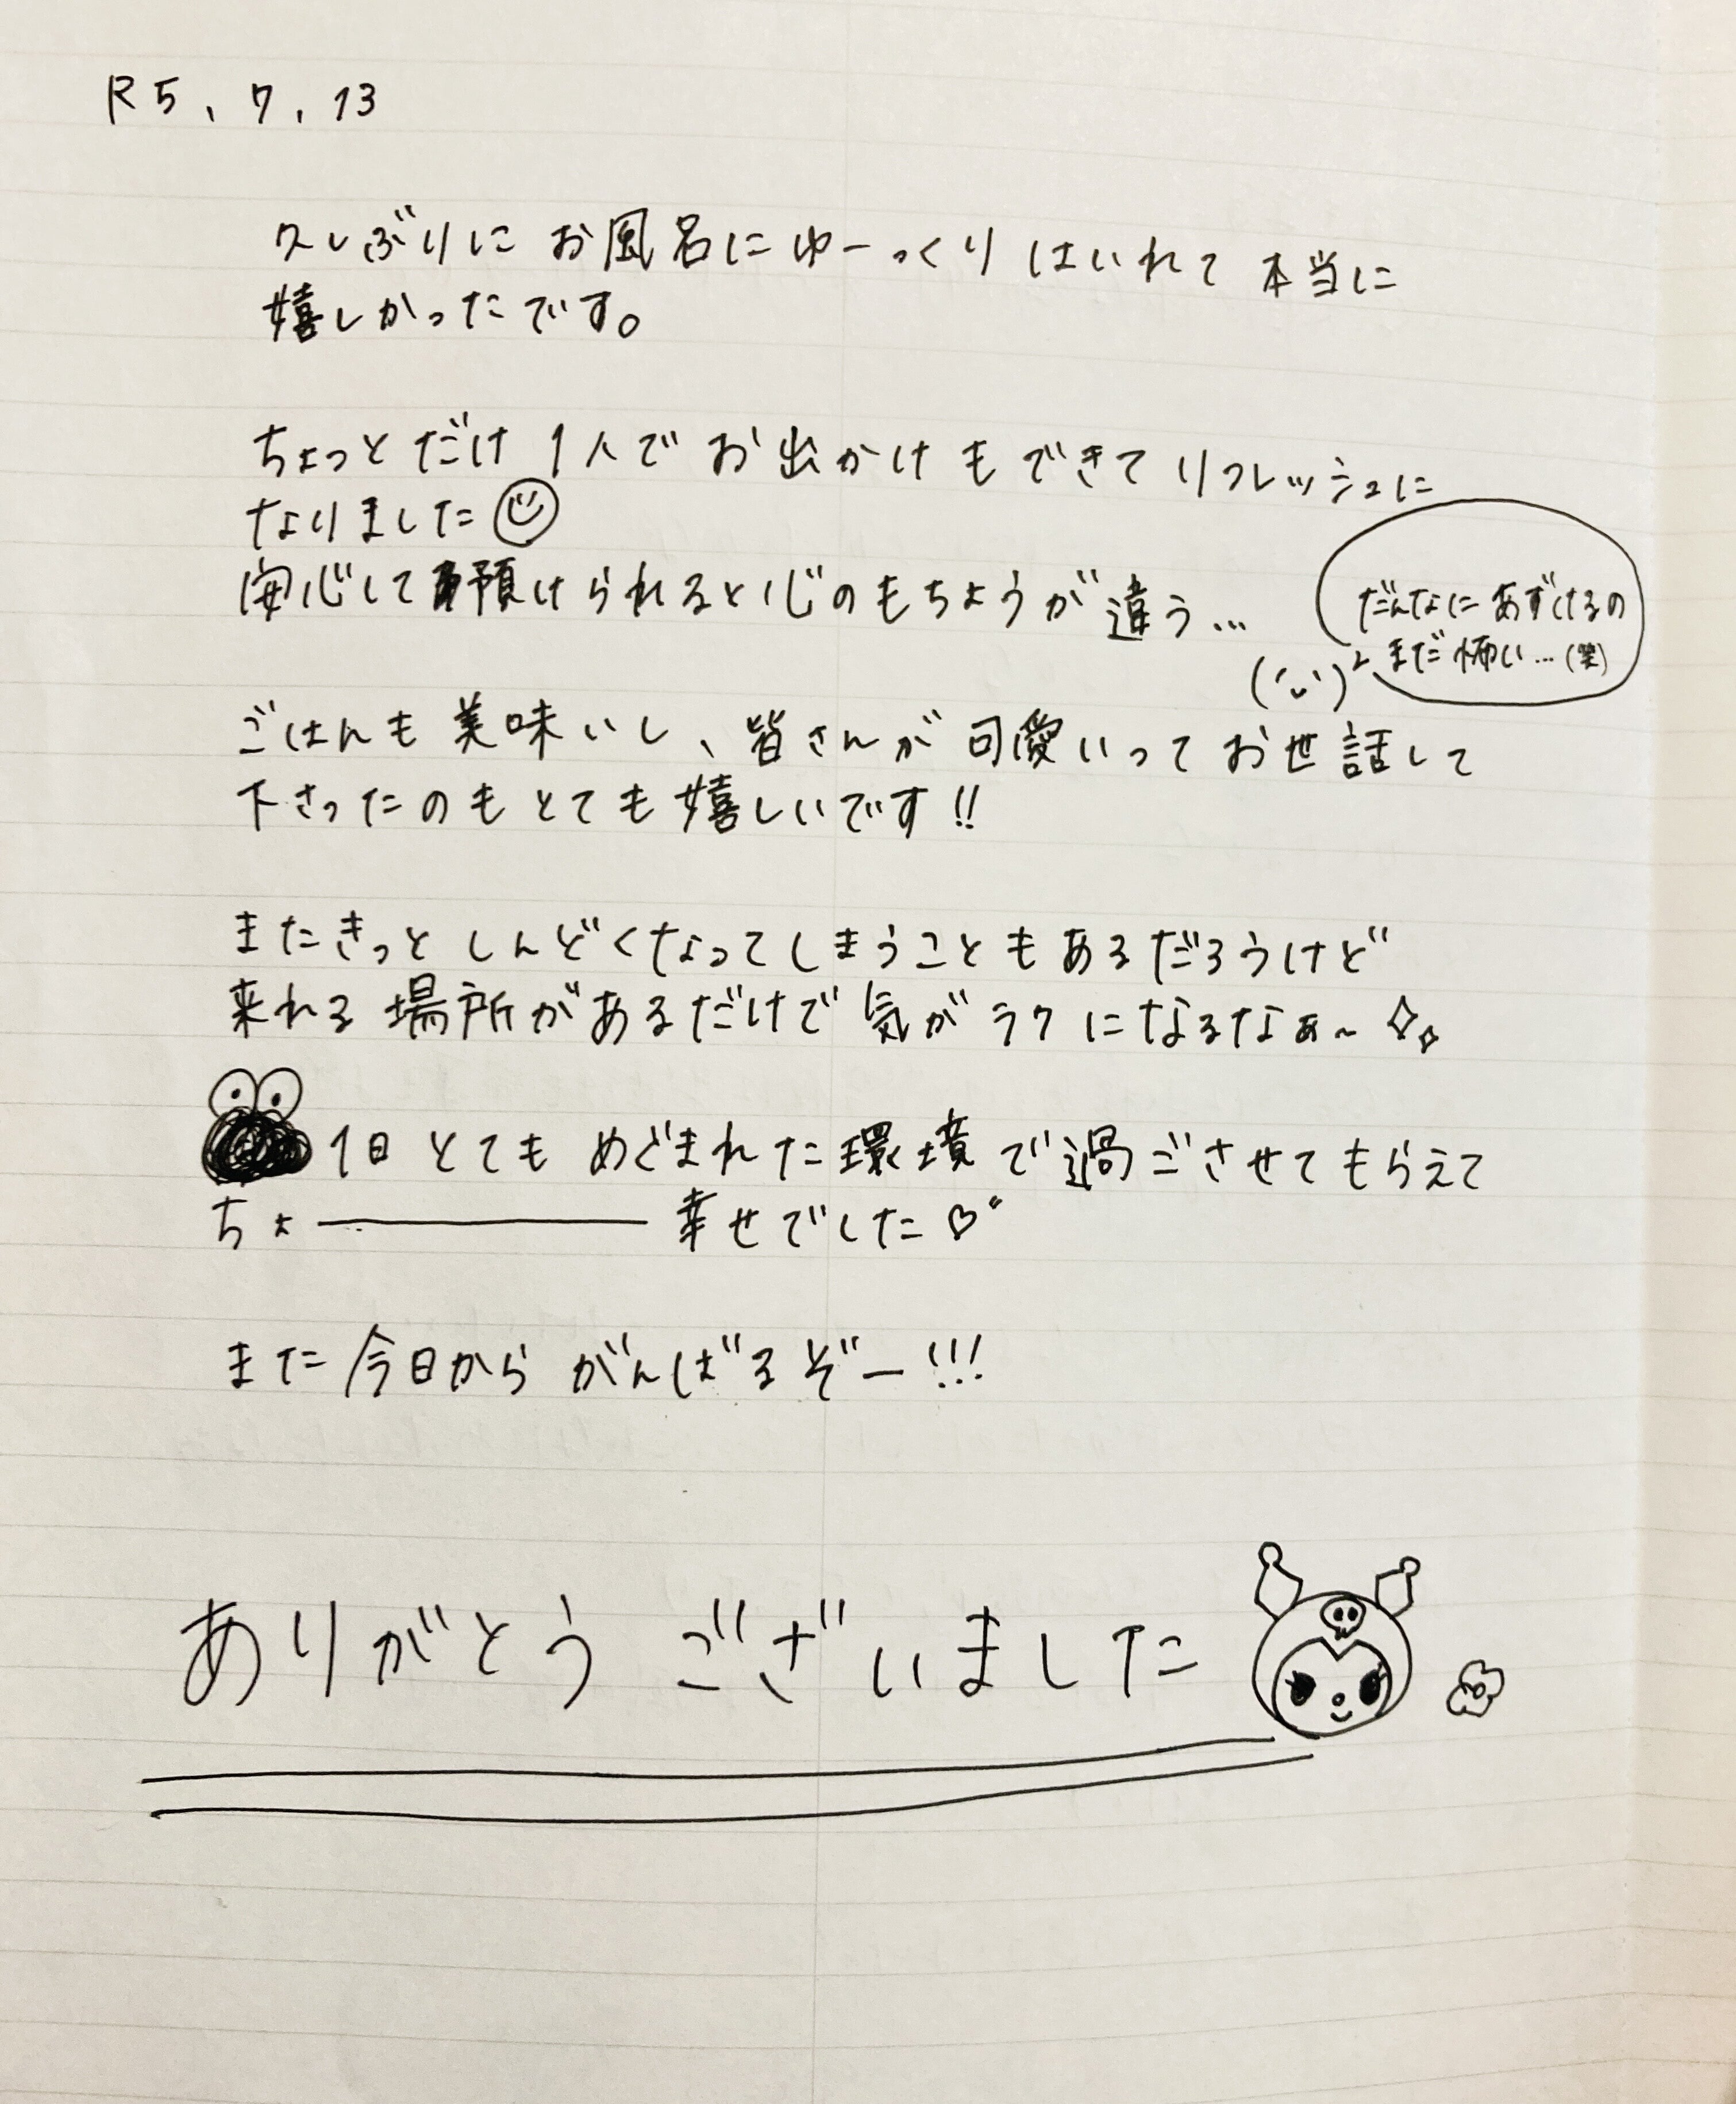 R5.7.13
久しぶりにお風呂にゆーっくりはいれて本当に
嬉しかったです。
ちょっとだけ1人でお出かけもできてリフレッシュに
なりました
安心して預けられると心のもちようが違う…
だんなにあずけるの
まだ怖い…(笑)
ごはんも美味いし、皆さんが可愛いってお世話して
下さったのもとても嬉しいです!!
またきっとしんどくなってしまうこともあるだろうけど
来れる場所があるだけで気がラクになるなぁ~
1日とてもめぐまれた環境で過ごさせてもらえて
ちょー幸せでした♡
また今日からがんばるぞー!!!
ありがとうございました